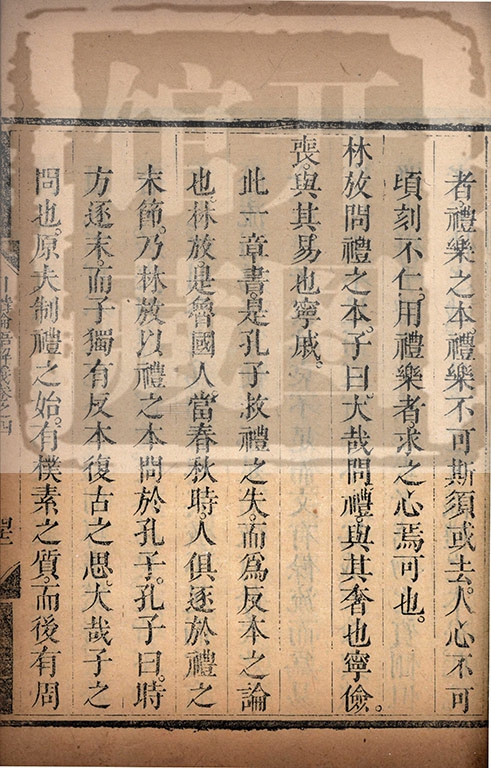 者禮樂之本禮樂不可斯須或去人心不可
頃刻不仁用禮樂者求之心焉可也
林放問禮之本子曰大哉問禮與其奢也寧儉
喪與其易也寧戚
此一章書是孔子救禮之失而為反本之論
也林放是魯國人當春秋時人俱逐於禮之
末節乃林放以禮之本問於孔子孔子曰時
方逐末而子獨有反本復古之思大哉子之
問也原夫制禮之始有樸素之質而後有周